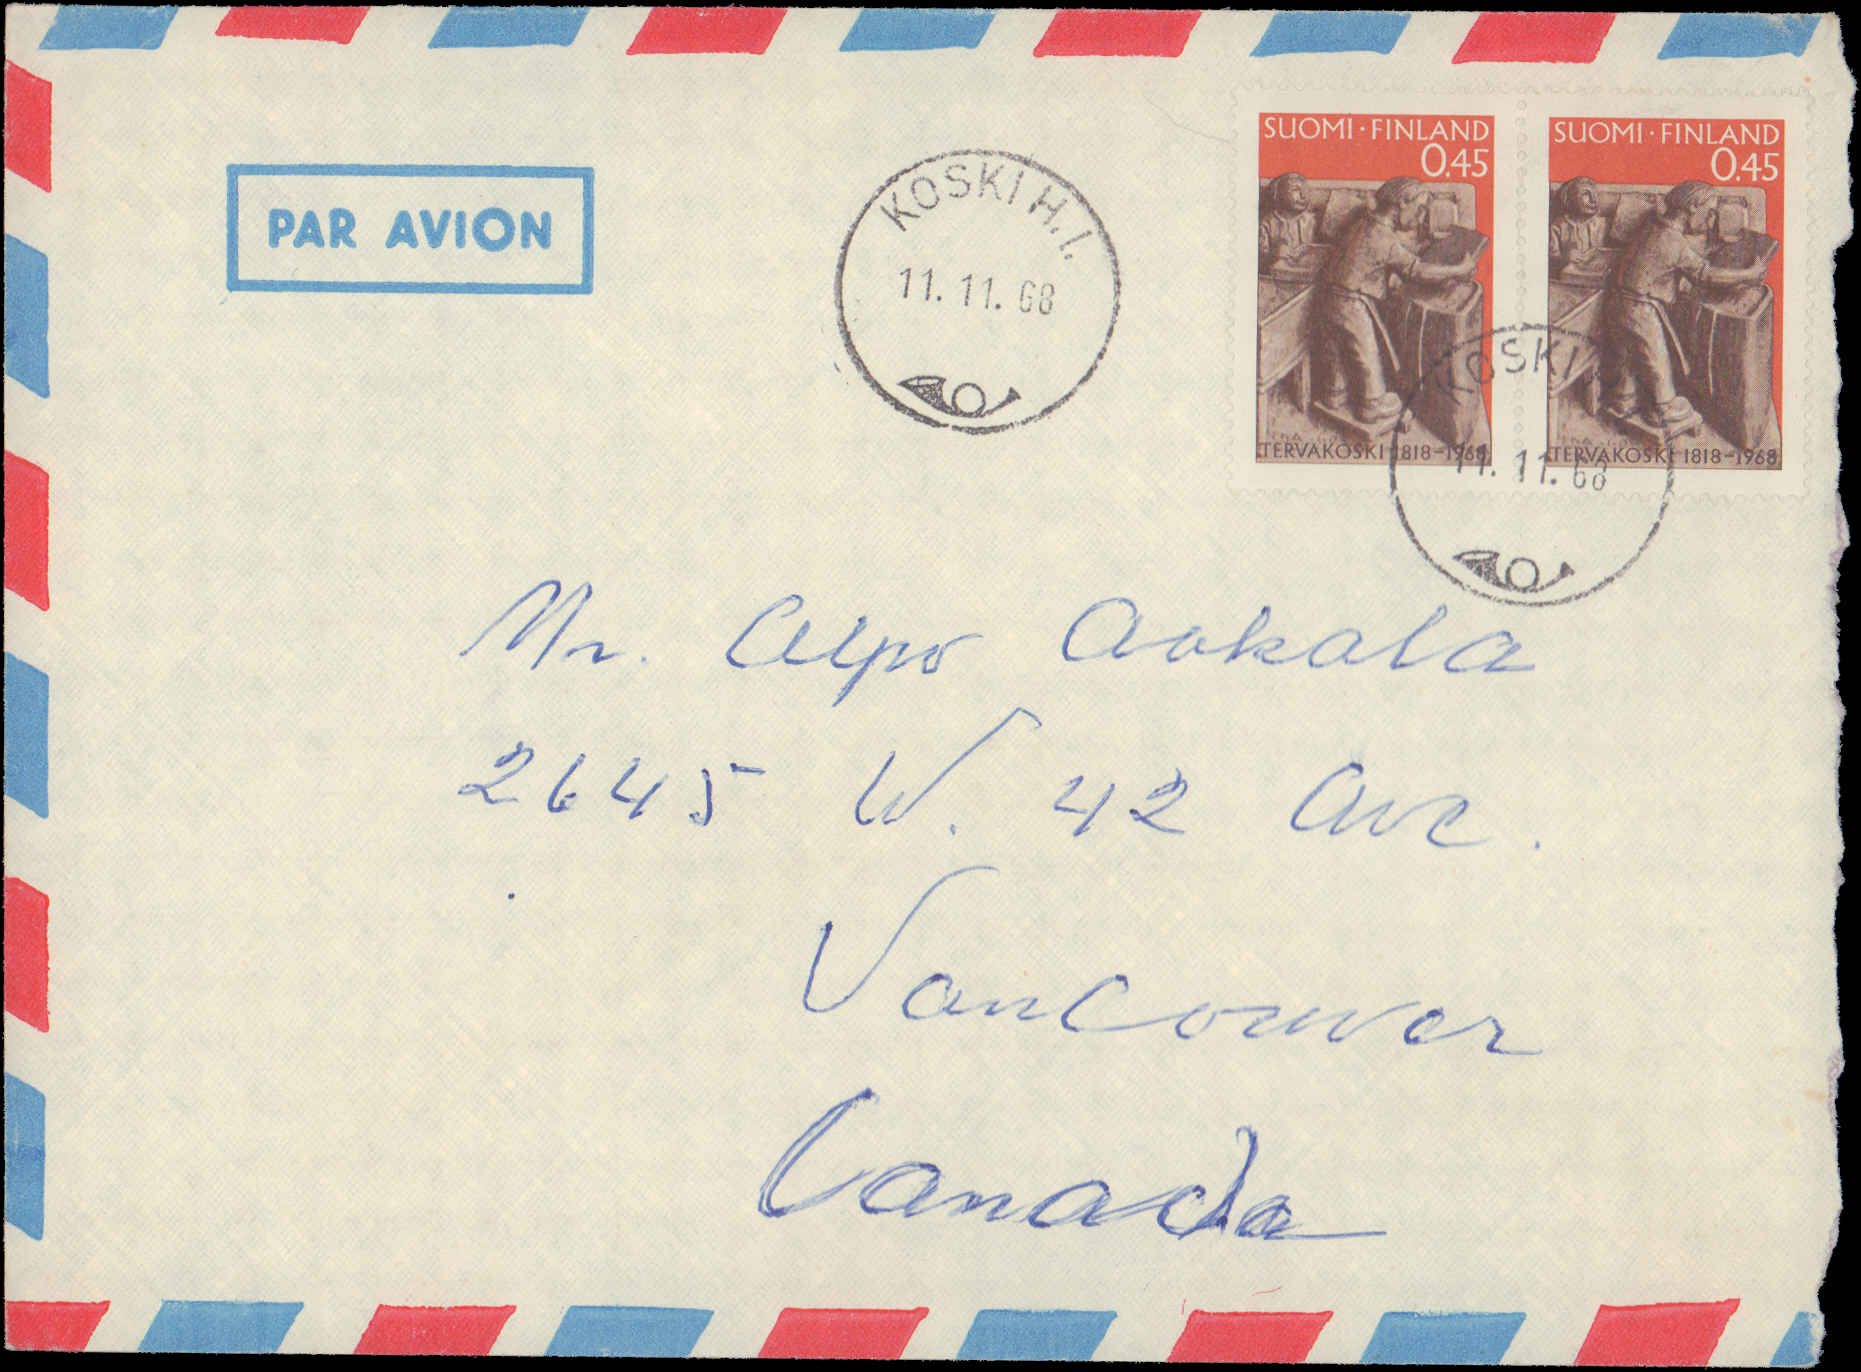 PAR AVION
KOSKI H.l.
11.11.68
SUOMI·FINLAND
0.45
TERVAKOSKI 1818-1968
SUOMI·FINLAND
0.45
TERVAKOSKI 1818-1968
KOSKI
11.11.68
Mr. Alpo Aokala
2645 W. 42 Ave.
Vancouver
Canada